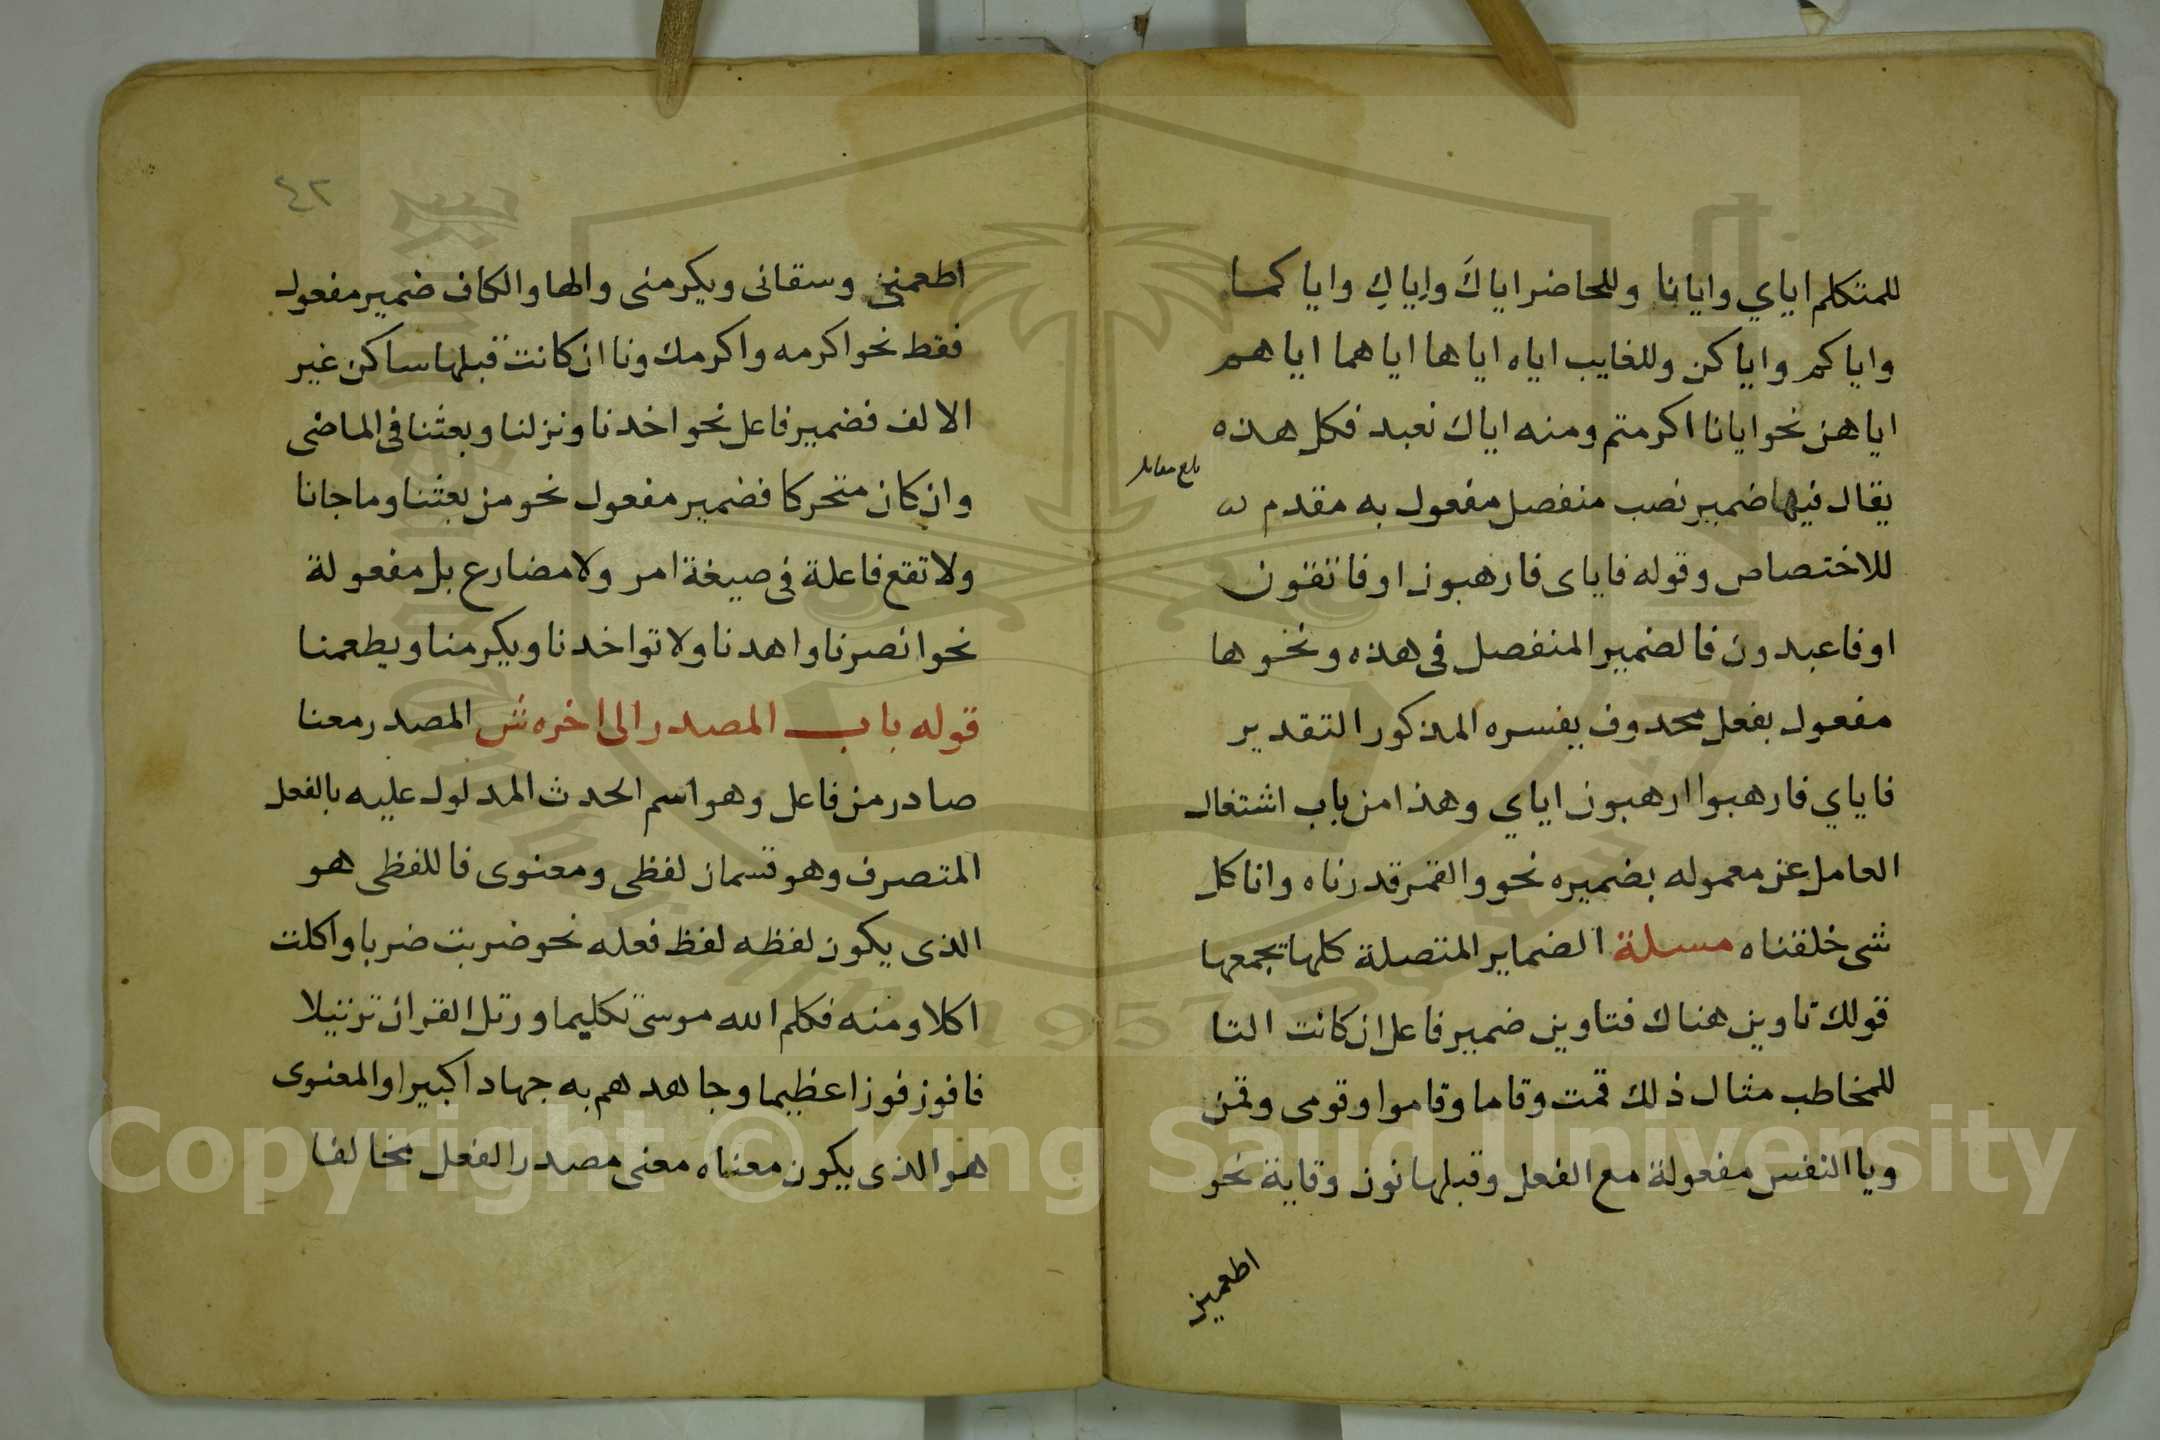 للمتكلم اياي وايانا وللحاضر اياكَ واِياكِ واياكما
واياكم واياكن وللغايب اياه اياها اياهما اياهم
اياهن نحو ايانا اكرمتم ومنه اياك نعبد فكل هذه
يقال فيها ضمير نصب منفصل مفعول به مقدم
للاختصاص وقوله فاياى فارهبون او فاتقون
او فاعبدون فالضمير المنفصل فى هذه ونحوها
مفعول بفعل محدوف يفسره المذكور التقدير
فاياي فارهبوا ارهبون اياي وهذا من باب اشتغال
العامل عن معموله بضميره نحو والقمر قدرناه وانا كل
شى خلقناه مسلة الضماير المتصلة كلها تجمعها
قولك تاوين هناك فتاوين ضمير فاعل ان كانت التا
للمخاطب مثال ذلك قمت وقاما وقاموا وقومى وقمن
ويا النفس مفعولة مع الفعل وقبلها نون وقاية نحو
اطعمنى
٤٢
اطعمنى وسقانى ويكرمنى والها والكاف ضمير مفعول
فقط نحو اكرمه واكرمك ونا ان كانت قبلها ساكن غير
الالف فضمير فاعل نحو اخدنا ونزلنا وبعثنا فى الماضى
وان كان متحركا فضمير مفعول نحو من بعثنا وما جانا
ولا تقع فاعلة فى صيغة امر ولا مضارع بل مفعولة
نحو انصرنا واهدنا ولا تواخدنا ويكرمنا ويطعمنا
قوله باب المصدر الى اخره ش المصدر معنا
صادر من فاعل وهو اسم الحدث المدلول عليه بالفعل
المتصرف وهو قسمان لفظى ومعنوى فاللفظى هو
الذى يكون لفظه لفظ فعله نحو ضربت ضربا واكلت
اكلا ومنه فكلم الله موسى تكليما ورتل القران ترتيلا
فافوز فوزا عظيما وجاهدهم به جهادا كبيرا والمعنوى
هو الذى يكون معناه معنى مصدر الفعل مخالفا
Copyright © King Saud University